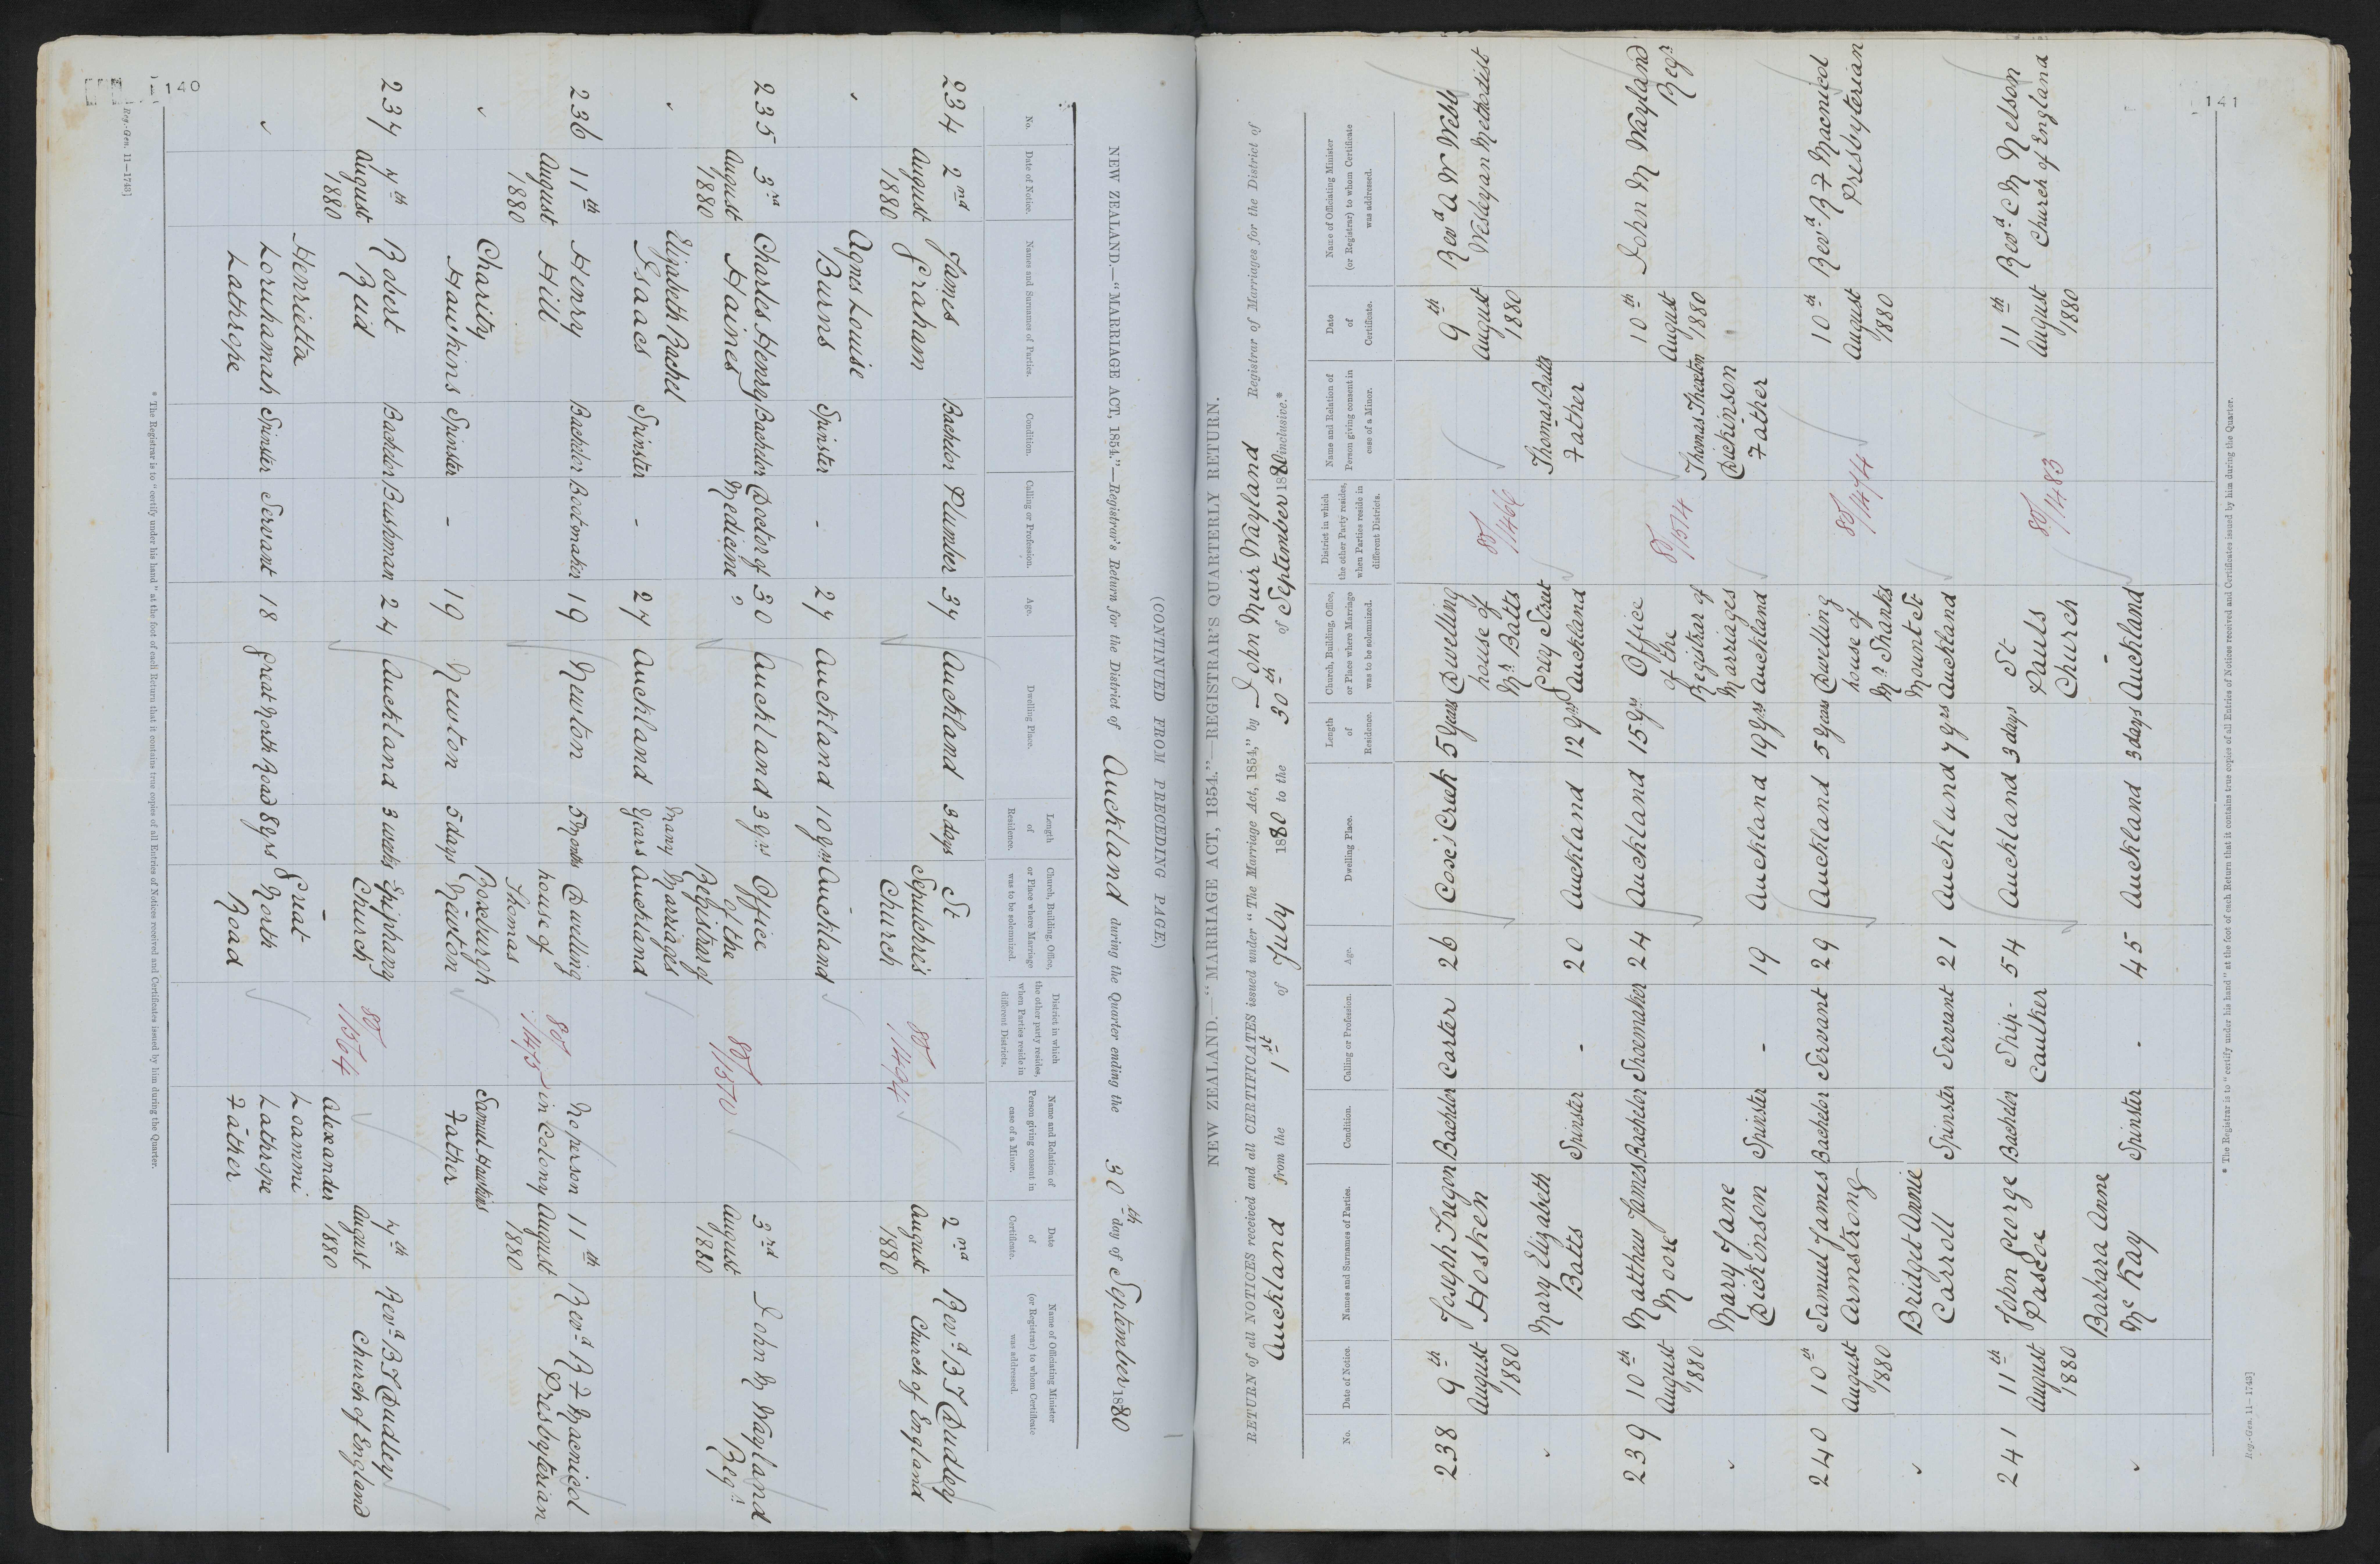 140
(CONTINUED FROM PRECEDING PAGE)
NEW ZEALAND.—"MARRIAGE ACT, 1854."—Registrar's Return for the District of Auckland during the Quarter ending the 30th day of September 1880
No. Date of Notice. Names and Surnames of Parties. Condition. Calling or Profession. Age. Dwelling Place. Length of Residence. Church, Building, Office, or Place where Marriage was to be solemnized. District in which the other party resides, when Parties reside in different Districts. Name and Relation of Person giving consent in case of a Minor. Date of Certificate. Name of Officiating Minister (or Registrar) to whom Certificate was addressed.
234 2nd James Bachelor Plumber 34 Auckland 3 days St 80/1494 2nd Revd B T Dudley
August Graham Sepulchre's August Church of England
1880 Church 1880
Agnes Louise -
Burns Spinster - 27 Auckland 10 yrs Auckland
235 3rd Charles Henry Bachelor Doctor of 30 Auckland 3 yrs Office 80/1570 3rd John M Wayland
August Haines Medicine of the August Regr
1880 Registrar of 1880
Elizabeth Rachel Many Marriages
Isaacs Spinster - 27 Auckland Years Auckland
236 11th Henry Bachelor Bootmaker 19 Newton 5 Months Dwelling 80/1475 No person 11th Revd R F Macnicol
August Hill house of in Colony August Presbyterian
1880 Thomas 1880
Charity Roxburgh Samuel Hawkins
Hawkins Spinster - 19 Newton 5 days Newton Father
237 4th Robert Bachelor Bushman 24 Auckland 3 weeks Epiphany 80/1564 4th Revd B T Dudley
August Reid Church August Church of England
1880 - Alexander 1880
Henrietta Great Loammi
Loruhamah Spinster Servant 18 Great North Road 8 yrs North Lathrope
Lathrope Road Father
* The Registrar is to "certify under his hand" at the foot of each Return that it contains true copies of all Entries of Notices received and Certificates issued by him during the Quarter.
Reg.-Gen. 11—1743]
141
NEW ZEALAND.—"MARRIAGE ACT, 1854."—REGISTRAR'S QUARTERLY RETURN.
RETURN of all NOTICES received and all CERTIFICATES issued under "The Marriage Act, 1854," by John Muir Wayland Registrar of Marriages for the District of
Auckland from the 1st of July 1880 to the 30th of September 1880 inclusive.*
No. Date of Notice. Names and Surnames of Parties. Condition. Calling or Profession. Age. Dwelling Place. Length of Residence. Church, Building, Office, or Place where Marriage was to be solemnized. District in which the other Party resides, when Parties reside in different Districts. Name and Relation of Person giving consent in case of a Minor. Date of Certificate. Name of Officiating Minister (or Registrar) to whom Certificate was addressed.
238 9th Joseph Tregon Bachelor Carter 26 Cose's Creek 5 Years Dwelling 80/1466 9th Revd A W Webb
August Hosken house of August Wesleyan Methodist
1880 Mr Batts 1880
Mary Elizabeth Grey Street Thomas Batts
Batts Spinster - 20 Auckland 12 yrs Auckland Father
239 10th Matthew James Bachelor Shoemaker 24 Auckland 15 yrs Office 80/1514 10th John M Wayland
August Moore of the August Regr
1880 Registrar of Thomas Thexton 1880
Mary Jane Marriages Dickinson
Dickinson Spinster - 19 Auckland 19 yrs Auckland Father
240 10th Samuel James Bachelor Servant 29 Auckland 5 Years Dwelling 80/1474 10th Revd R F Macnicol
August Armstrong house of August Presbyterian
1880 Mr Shanks 1880
Bridget Annie Mount St
Carroll Spinster Servant 21 Auckland 7 yrs Auckland
241 11th John George Bachelor Ship- 54 Auckland 3 days St 80/1483 11th Revd C M Nelson
August Pascoe Caulker Pauls August Church of England
1880 Church 1880
Barbara Anne -
McKay Spinster - 45 Auckland 3 days Auckland
* The Registrar is to "certify under his hand" at the foot of each Return that it contains true copies of all Entries of Notices received and Certificates issued by him during the Quarter.
Reg.-Gen. 11—1743]